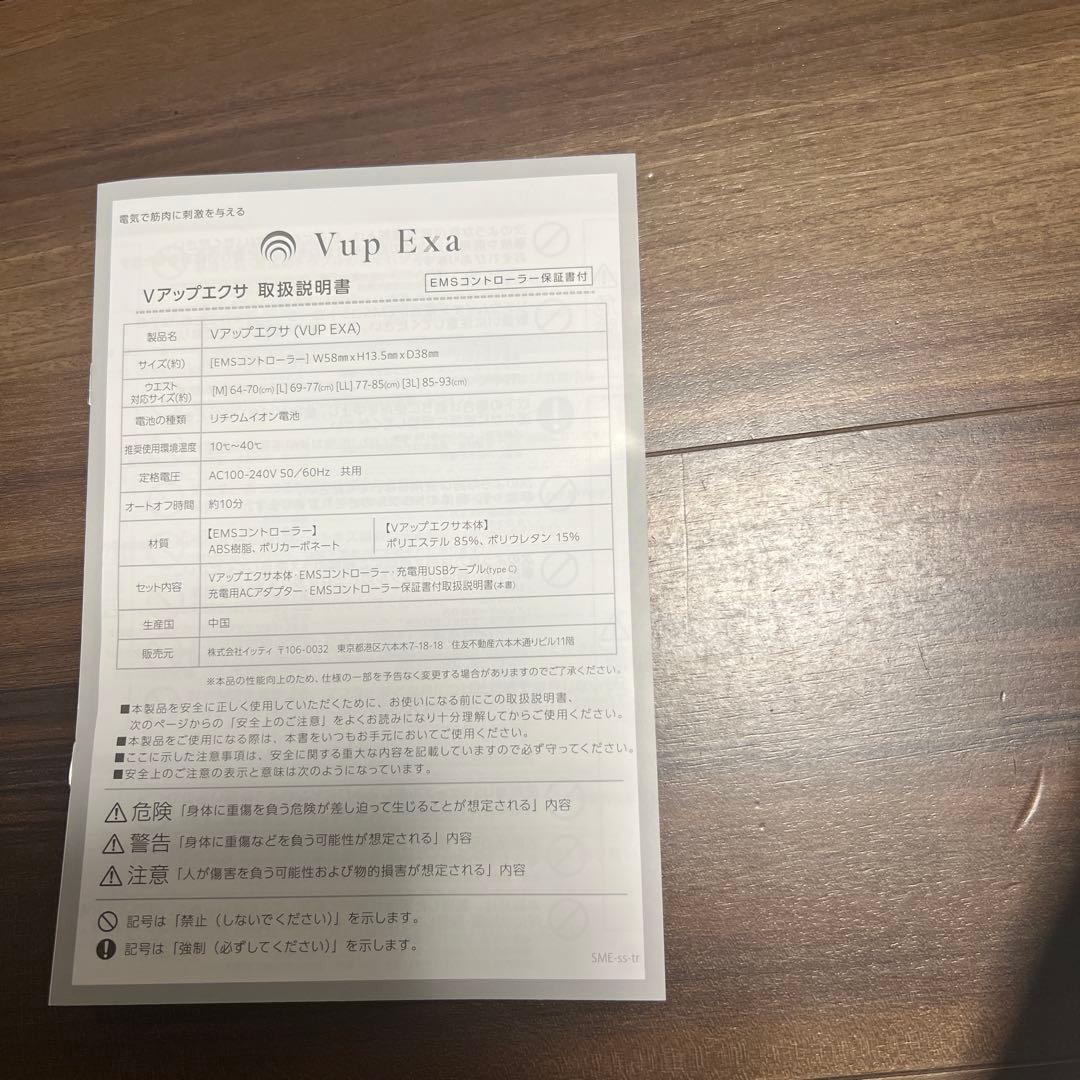 電気で筋肉に刺激を与える
Vup Exa
Vアップエクサ 取扱説明書
EMSコントローラー保証書付
製品名 Vアップエクサ (VUP EXA)
サイズ(約) [EMSコントローラー] W58㎜xH13.5㎜xD38㎜
ウエスト
対応サイズ(約) [M] 64-70(cm) [L] 69-77(cm) [LL] 77-85(cm) [3L] 85-93(cm)
電池の種類 リチウムイオン電池
推奨使用環境温度 10℃～40℃
定格電圧 AC100-240V 50／60Hz 共用
オートオフ時間 約10分
材質 【EMSコントローラー】 【Vアップエクサ本体】
ABS樹脂、ポリカーボネート ポリエステル 85%、ポリウレタン 15%
セット内容 Vアップエクサ本体・EMSコントローラー・充電用USBケーブル(type C)
充電用ACアダプター・EMSコントローラー保証書付取扱説明書(本書)
生産国 中国
販売元 株式会社イッティ 〒106-0032 東京都港区六本木7-18-18 住友不動産六本木通りビル11階
※本品の性能向上のため、仕様の一部を予告なく変更する場合がありますのでご了承ください。
■本製品を安全に正しく使用していただくために、お使いになる前にこの取扱説明書、
次のページからの「安全上のご注意」をよくお読みになり十分理解してからご使用ください。
■本製品をご使用になる際は、本書をいつもお手元においてご使用ください。
■ここに示した注意事項は、安全に関する重大な内容を記載していますので必ず守ってください。
■安全上のご注意の表示と意味は次のようになっています。
危険「身体に重傷を負う危険が差し迫って生じることが想定される」内容
警告「身体に重傷などを負う可能性が想定される」内容
注意「人が傷害を負う可能性および物的損害が想定される」内容
記号は「禁止（しないでください）」を示します。
記号は「強制（必ずしてください）」を示します。
SME-ss-tr